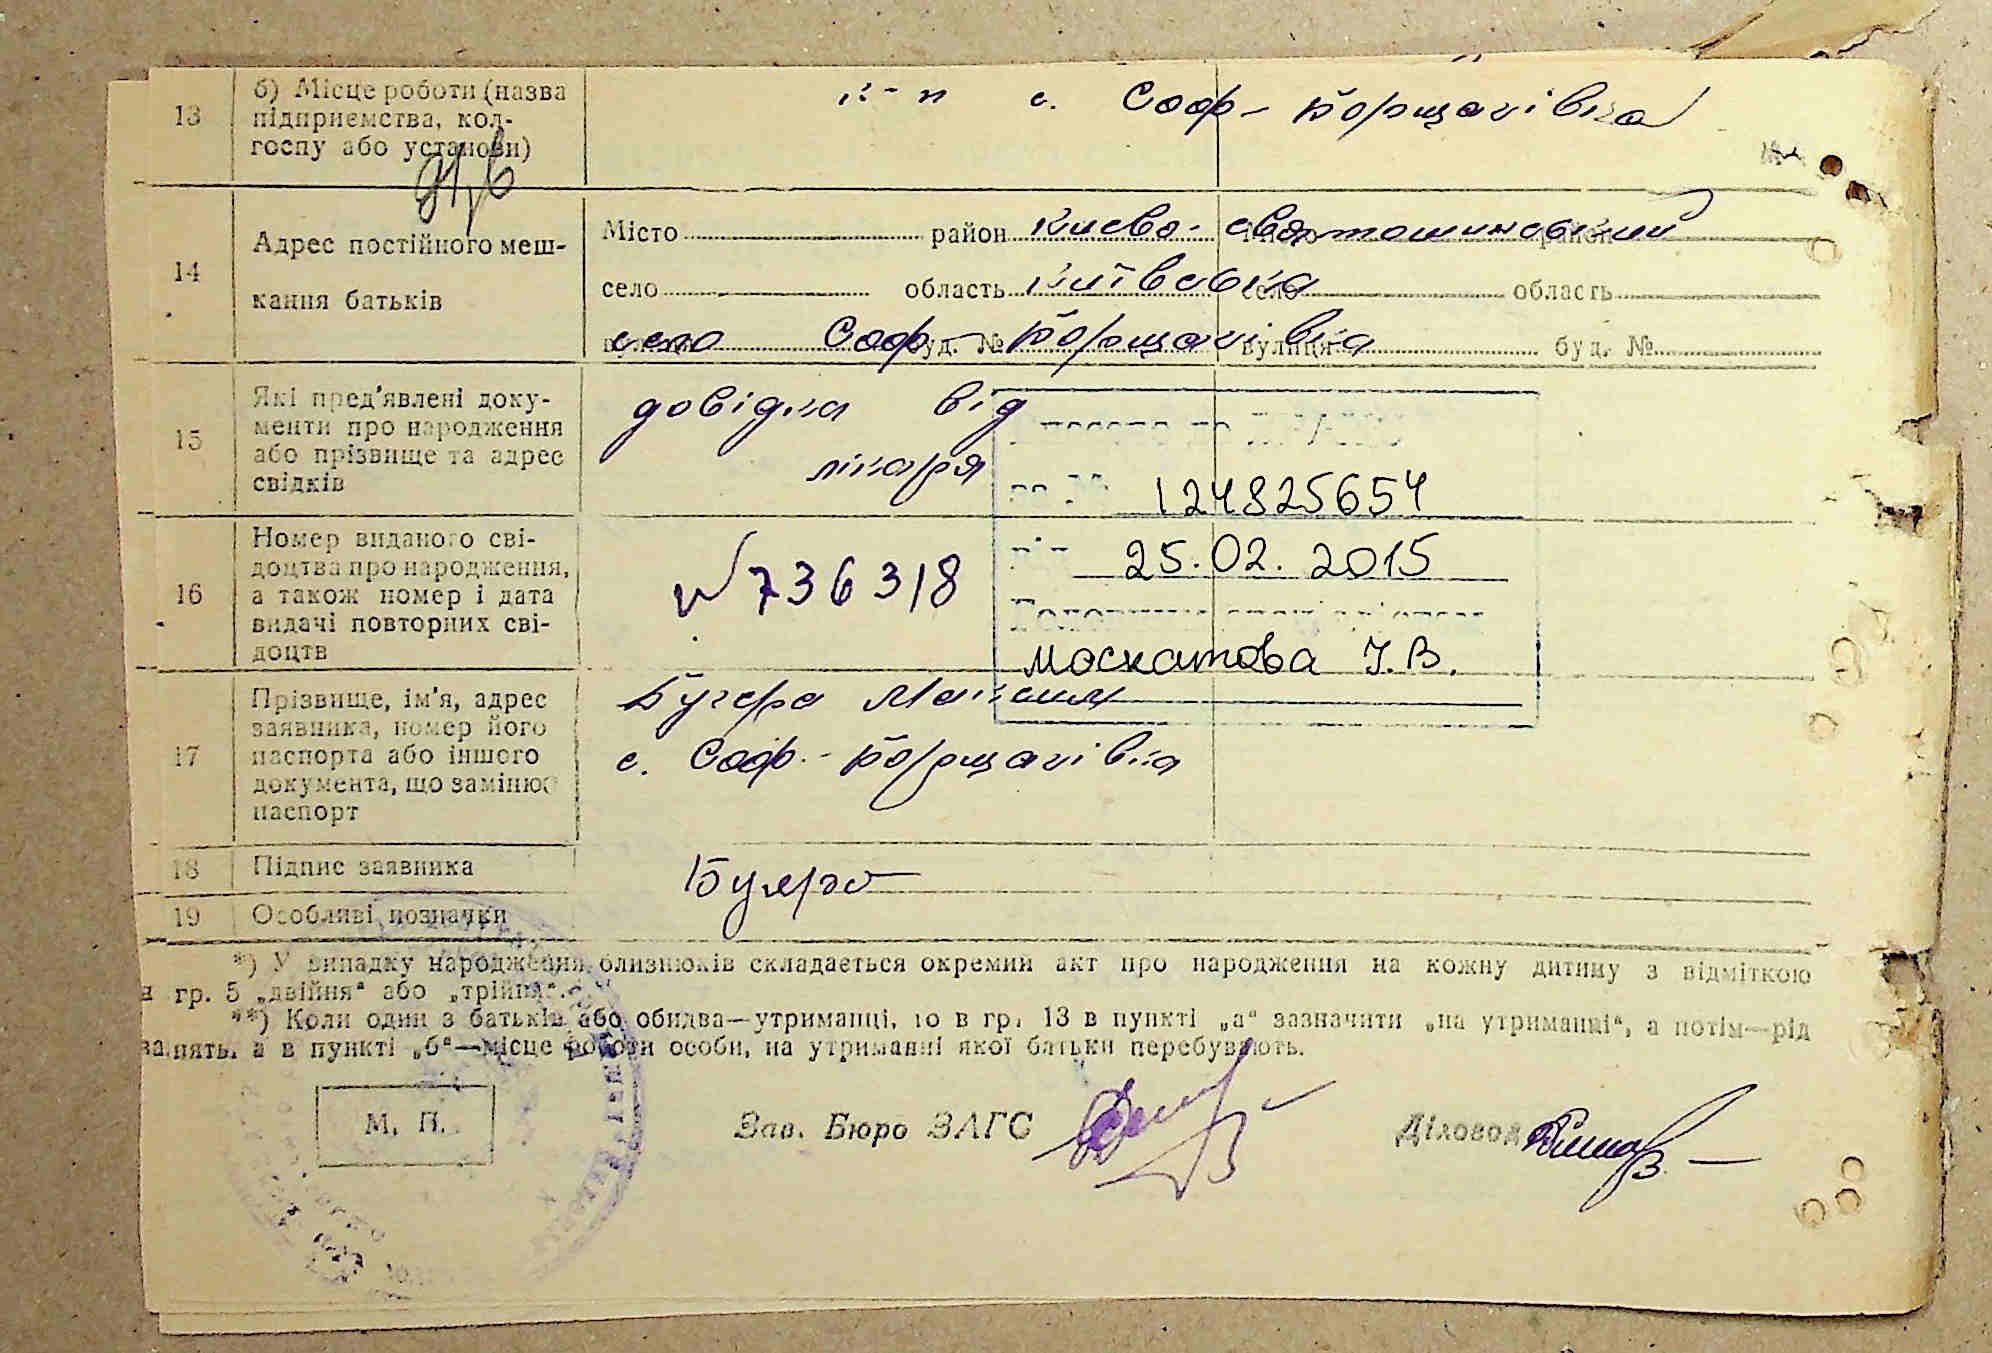 13 б) Місце роботи (назва підприємства, колгоспу або установи) к-п с. Соф-Борщагівка
14 Адрес постійного меш-
кання батьків
Місто район Києво-Святошинський район
село область Київська село область
село Соф-Борщагівка буд. № вулиця буд. №
15 Які пред'явлені доку-
менти про народження
або прізвище та адрес
свідків
довідка від
лікаря
16 Номер виданого сві-
доцтва про народження,
а також номер і дата
видачі повторних сві-
доцтв
N 736318
124825654
25.02.2015
Москатова І.В.
17 Прізвище, ім'я, адрес
заявника, номер його
паспорта або іншого
документа, що замінює
паспорт
Бугера Максим
с. Соф.-Борщагівка
18 Підпис заявника Бугера
19 Особливі позначки
*) У випадку народження близнюків складається окремий акт про народження на кожну дитину з відміткою
в гр. 5 „двійня“ або „трійня“.
**) Коли один з батьків або обидва—утриманці, то в гр. 13 в пункті „а“ зазначити „на утриманні“, а потім—рід
занять, а в пункті „б“—місце роботи особи, на утриманні якої батьки перебувають.
М. П.
Зав. Бюро ЗАГС
Діловод